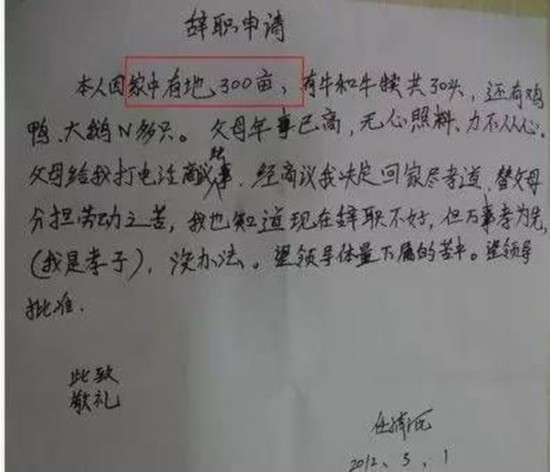 辞职申请
本人因家中有地300亩,有牛和牛犊共30头,还有鸡
鸭、大鹅N多只。父母年事已高,无心照料、力不从心。
父母给我打电话商议事,经商议我决定回家尽孝道,替父母
分担劳动之苦,我也知道现在辞职不好,但万事孝为先,
(我是孝子),没办法。望领导体量下属的苦中。望领导
批准.
此致
敬礼
2012.3.1